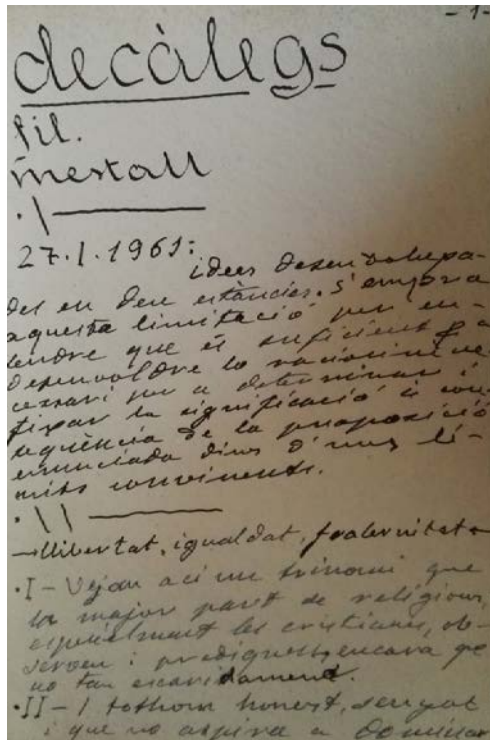 - 1 -
decàlegs
fil.
mestall
. \ ———
27.I.1961:
idees desenvolupa-
des en deu estàncies. S'empra
aquesta limitació per en-
tendre que és suficient p a
desenvoldre lo raciocini ne-
cessari per a determinar i
fixar la significació i con-
seqüència de la proposició
enunciada dins d'uns lí-
mits convinents.
. \ \ ———
—llibertat, igualdat, fraternitat—
·I – Vejau ací un trinomi que
la major part de religions,
especialment les cristianes, ob-
serven i prediquen, encara que
no tan escaridament.
·II – I tothom honest, senyat
i que no aspira a dominar